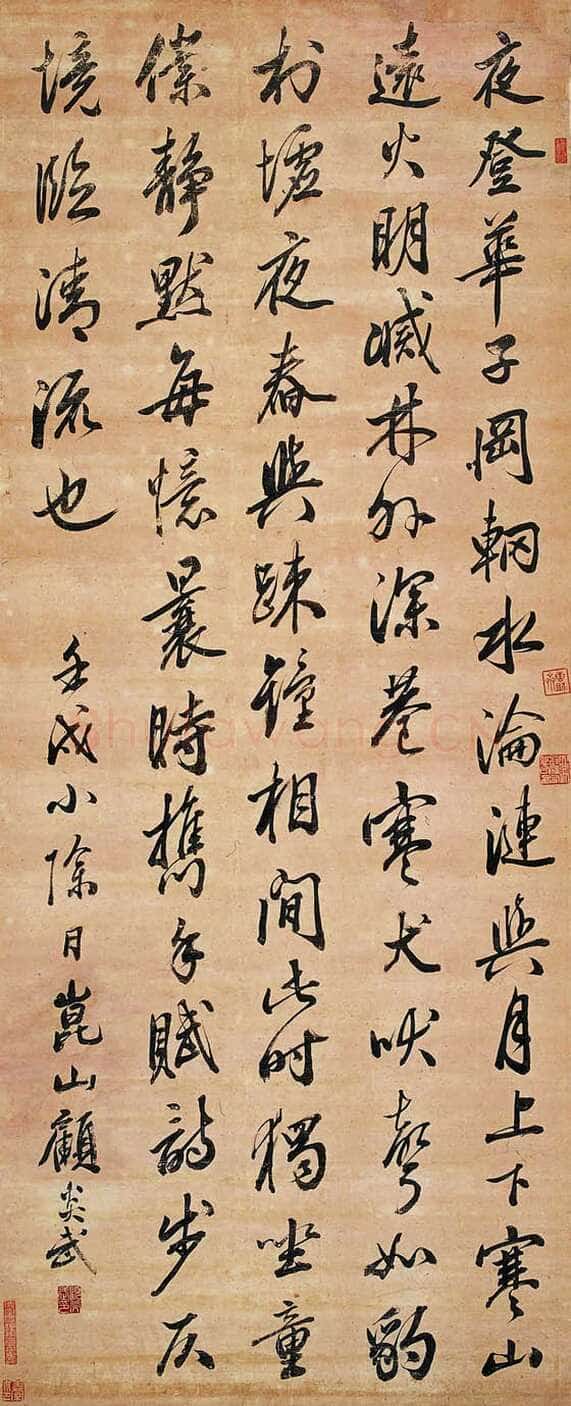 夜登華子岡輞水淪漣與月上下寒山
遠火明滅林外深巷寒犬吠聲如豹
村墟夜舂與踈鐘相間此时獨坐童
僕靜默每憶曩時攜手賦詩步仄
境臨清流也
壬戌小除日崑山顧炎武